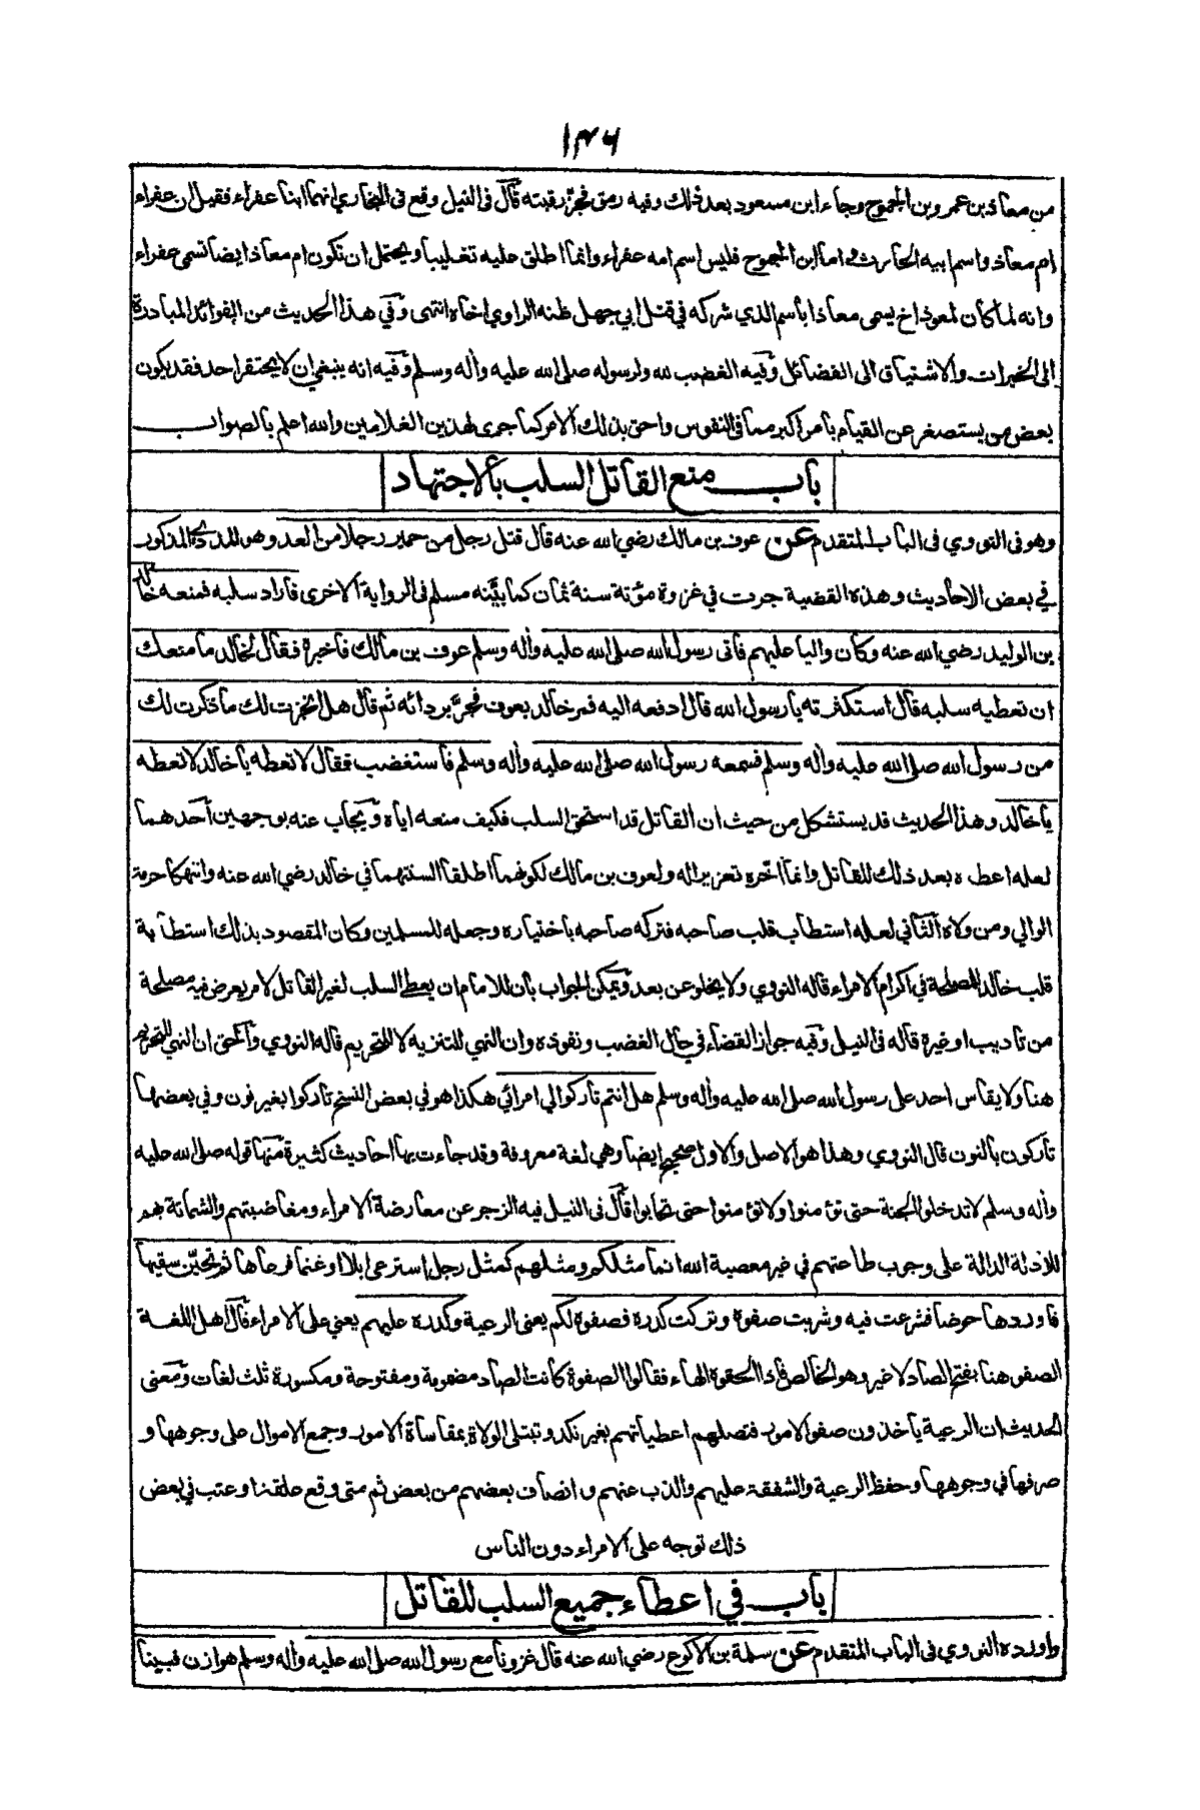 ١٣٦
من معاذ بن عمرو بن الجموح وجاء ابن مسعود بعد ذلك وفيه رمق فحز رقبته قال فى النيل وقع فى البخاري انهما ابنا عفراء فقيل ان عفراء
ام معاذ واسم ابيه الحارث واما ابن الجموح فليس اسم امه عفراء وانما اطلق عليه تغليبا ويحتمل ان تكون ام معاذ ايضا تسمى عفراء
وانه لما كان لمعوذ اخ يسمى معاذا باسم الذي شركه في قتل ابي جهل ظنه الراوي اخاه انتهى وفي هذا الحديث من الفوائد المبادرة
الى الخيرات والاشتياق الى الفضائل وفيه الغضب لله ولرسوله صلى الله عليه وأله وسلم وفيه انه ينبغي ان لا يحتقر احد فقد يكون
بعض من يستصغر عن القيام بامر اكبر مما فى النفوس واحق بذلك الامر كما جرى لهذين الغلامين والله اعلم بالصواب
باب منع القاتل السلب بالاجتهاد
وهو فى النووي فى الباب المتقدم عن عوف بن مالك رضي الله عنه قال قتل رجل من حمير رجلا من العدو وهو المددي المذكور
في بعض الاحاديث وهذه القضية جرت في غزوة مؤتة سنة ثمان كما بيّنه مسلم فى الرواية الاخرى فاراد سلبه فمنعه خالد
بن الوليد رضي الله عنه وكان واليا عليهم فاتى رسول الله صلى الله عليه وأله وسلم عوف بن مالك فاخبره فقال لخالد ما منعك
ان تعطيه سلبه قال استكثرته يا رسول الله قال ادفعه اليه فمر خالد بعوف فجرّ بردائه ثم قال هل انجزت لك ما ذكرت لك
من رسول الله صلى الله عليه وأله وسلم فسمعه رسول الله صلى الله عليه وأله وسلم فاستغضب فقال لا تعطه يا خالد لا تعطه
يا خالد وهذا الحديث قد يستشكل من حيث ان القاتل قد استحق السلب فكيف منعه اياه ويجاب عنه بوجهين احدهما
لعله اعطاه بعد ذلك للقاتل وانما اخّره تعزيرا له ولعوف بن مالك لكونهما اطلقا السنتهما في خالد رضي الله عنه وانتهكا حرمة
الوالي ومن ولاه الثاني لعله استطاب قلب صاحبه فتركه صاحبه باختياره وجعله للمسلمين وكان المقصود بذلك استطابة
قلب خالد للمصلحة في اكرام الامراء قاله النووي ولا يخلو عن بعد ويمكن الجواب بان للامام ان يعطي السلب لغير القاتل لامر يعرض فيه مصلحة
من تاديب او غيره قاله فى النيل وفيه جواز القضاء في حال الغضب ونفوذه وان النهي للتنزيه لا للتحريم قاله النووي والحق ان النهي للتحريم
هنا ولا يقاس احد على رسول الله صلى الله عليه وأله وسلم هل انتم تاركوا لي امرائي هكذا هو في بعض النسخ تاركوا بغير نون وفي بعضها
تاركون بالنون قال النووي وهذا هو الاصل والاول صحيح ايضا وهي لغة معروفة وقد جاءت بها احاديث كثيرة منها قوله صلى الله عليه
وأله وسلم لا تدخلوا الجنة حتى تؤمنوا ولا تؤمنوا حتى تحابوا قال فى النيل فيه الزجر عن معارضة الامراء ومغاضبتهم والشماتة بهم
للادلة الدالة على وجوب طاعتهم في غير معصية الله انما مثلكم ومثلهم كمثل رجل استرعى ابلا او غنما فرعاها ثم تحيّن سقيها
فاوردها حوضا فشرعت فيه وشربت صفوه وتركت كدره فصفوه لكم يعنى الرعية وكدره عليهم يعني على الامراء قال اهل اللغة
الصفو هنا بفتح الصاد لا غير وهو الخالص فاذا الحقوه الهاء فقالوا الصفوة كانت الصاد مضمومة ومفتوحة ومكسورة ثلث لغات ومعنى
الحديث ان الرعية ياخذون صفو الامور فتصلهم اعطياتهم بغير نكد وتبتلى الولاة بمقاساة الامور وجمع الاموال على وجوهها و
صرفها في وجوهها وحفظ الرعية والشفقة عليهم والذب عنهم وانصاف بعضهم من بعض ثم متى وقع علقنا وعتب في بعض
ذلك توجه على الامراء دون الناس
باب في اعطاء جميع السلب للقاتل
واورده النووي فى الباب المتقدم عن سلمة بن الاكوع رضي الله عنه قال غزونا مع رسول الله صلى الله عليه وأله وسلم هوازن فبينا